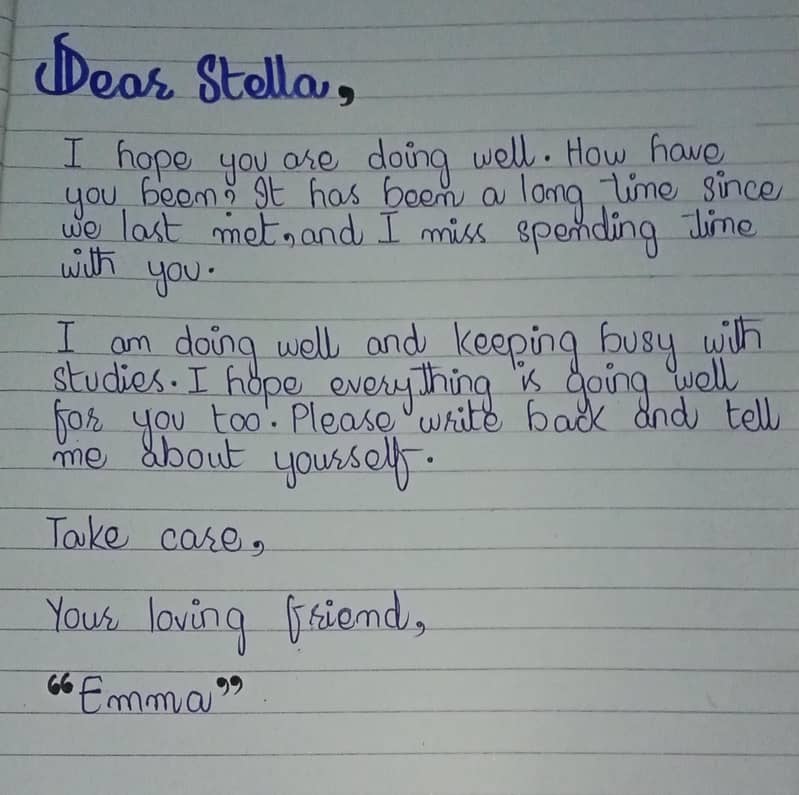 Dear Stella,
I hope you are doing well. How have
you been? It has been a long time since
we last met, and I miss spending time
with you.
I am doing well and keeping busy with
studies. I hope everything is going well
for you too. Please write back and tell
me about yourself.
Take care,
Your loving friend,
“Emma”